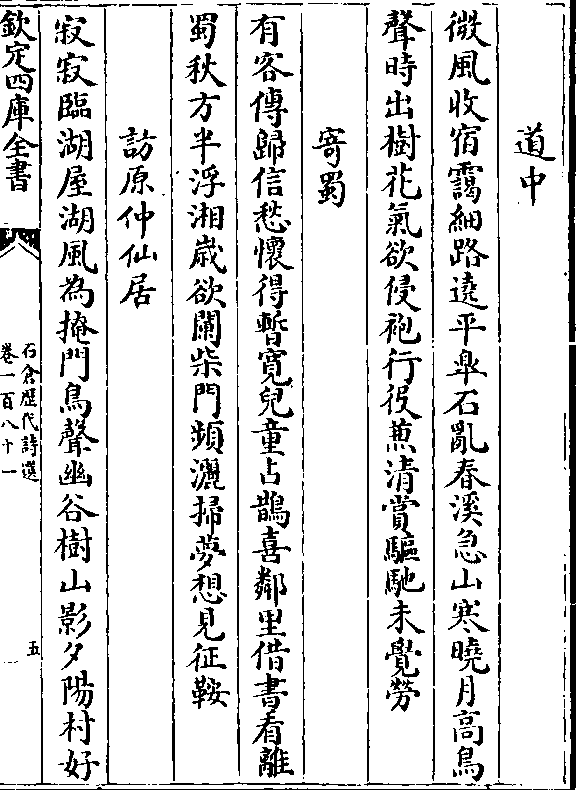 道中
微風收宿靄細路遶平臯石亂春溪急山寒曉月高鳥
聲時出樹花氣欲侵袍行役兼清賞驅馳未覺勞
寄蜀
有客傳歸信愁懷得暫寛兒童占鵲喜鄰里借書看離
蜀秋方半浮湘歲欲闌柴門頻灑掃夢想見征鞍
訪原仲仙居
寂寂臨湖屋湖風為掩門鳥聲幽谷樹山影夕陽村好
欽定四庫全書
石倉歷代詩選
卷一百八十一
五